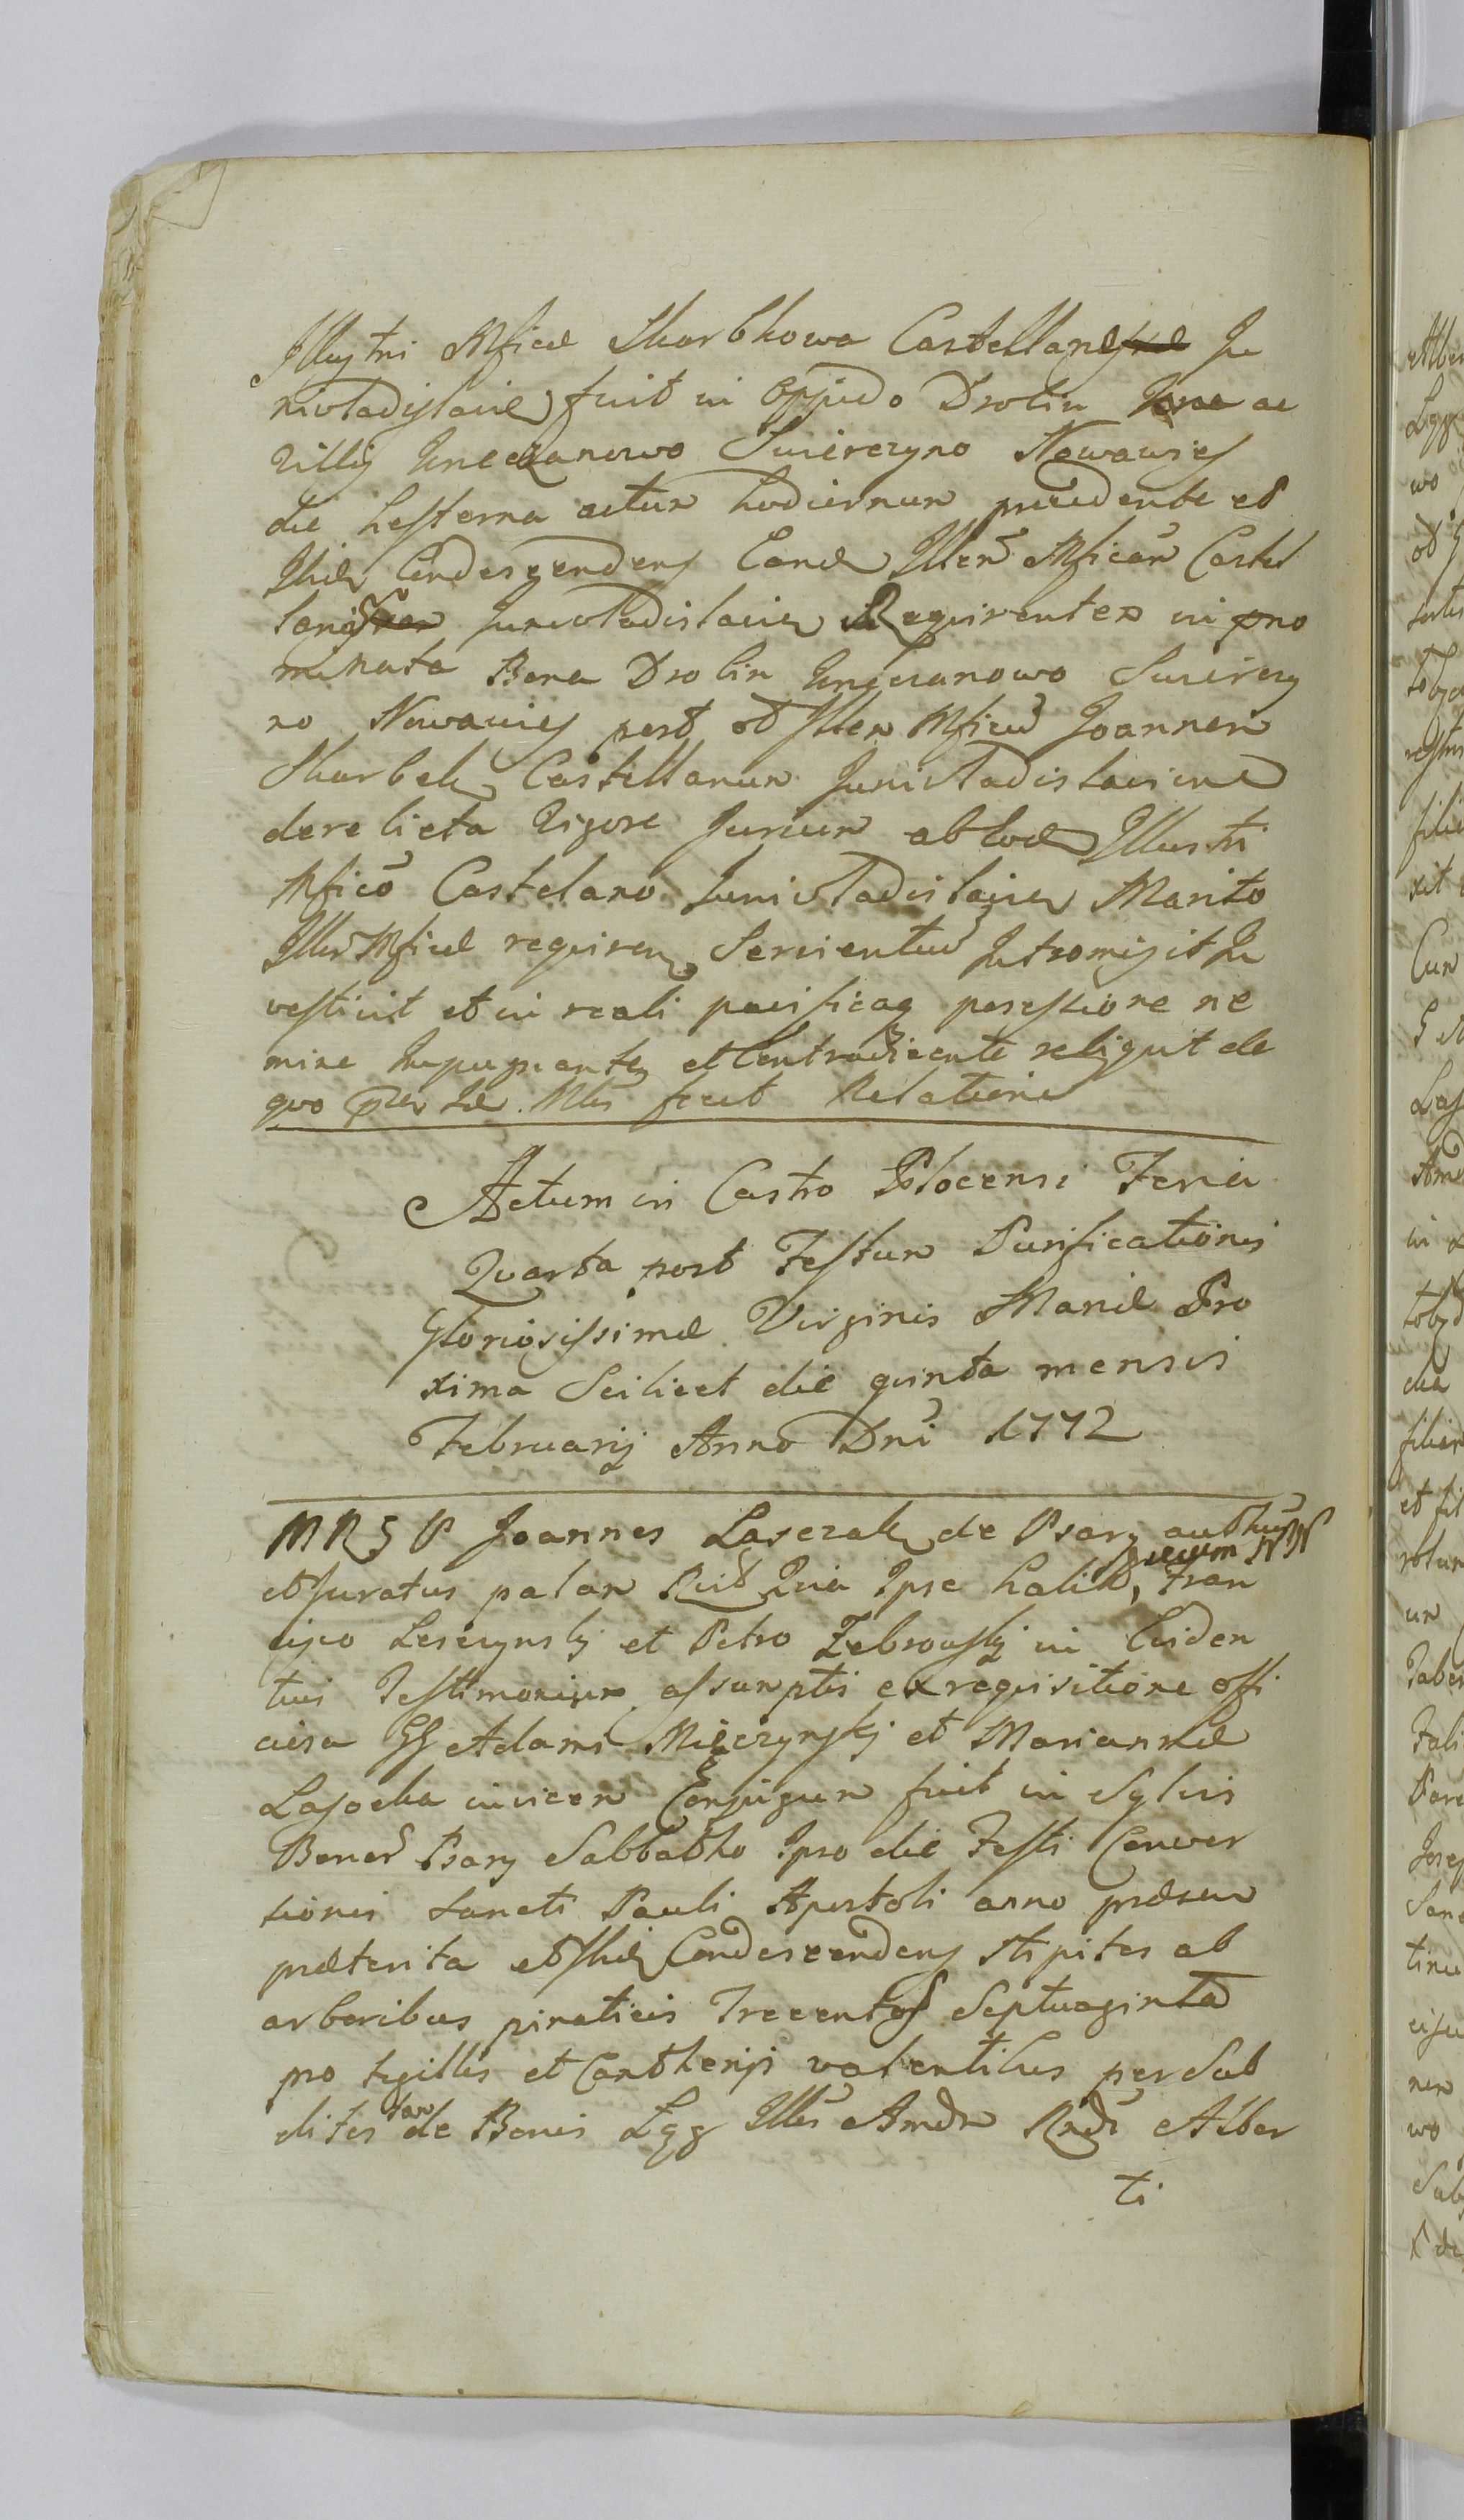 Illustri Mficæ Skarbkowa Castellanæ In
niwladislaviæ fuit in Oppido Drobin ac
Villis Kneczanowo Swierczyno Nowawies
die hesterna actum hodiernum præcedente et
Ibidem Condescendens Eandem Illem Mficam Castel
lanam Juniwladislavien Requirentem in præno
minata Bona Drobin Kneczanowo Swierczy
no Nowawies post ob Illem Mficum Joannem
Skarbek Castellanum Juniwladislavien
derelicta Vigore Jurium ab eodem Illustri
Mfico Castelano Juniwladislavien Marito
Illris Mficæ requiren Servientium Intromisit In
vestivit et in reali pacificaq possessione ne
mine Impugnante et Contradicente reliquit de
quo præm. fecit Relationem
Actum in Castro Plocensi Feria
Quarta post Festum Purificationis
Gloriosissimæ Virginis Mariæ Pro
xima Scilicet die quinta mensis
Februarij Anno Dni 1772
MRS P Joannes Laszczak de Psary authen
et Juratus palam Rcit Quia Ipse habit, secum NN Fran
cisco Leszczynskj et Petro Zebrowskj in Eviden
tius Testimonium assumptis ex requisitione offi
ciosa GG Adami Mięczynskj et Mariannæ
Lasocka invicem Conjugum fuit in Sylvis
Bonor Psary Sabbatho Ipso die Festi Conver
sionis Sancti Pauli Apostoli anno præsen
præterita et Ibidem Condescendens Stipites ab
arboribus pineticis Trecentos Septuaginta
pro tigillis et Cantherijs valentibus per Sub
ditos tam de Bonis Lgg Illris Amdm Rndi Alber
ti